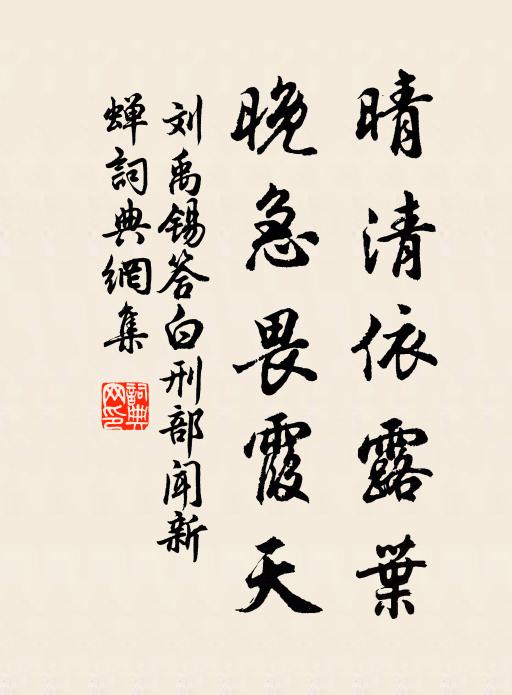 晴清依露葉
晚急畏霞天
刘禹锡答白刑部闻新
蝉詞典網集
詞典
网印